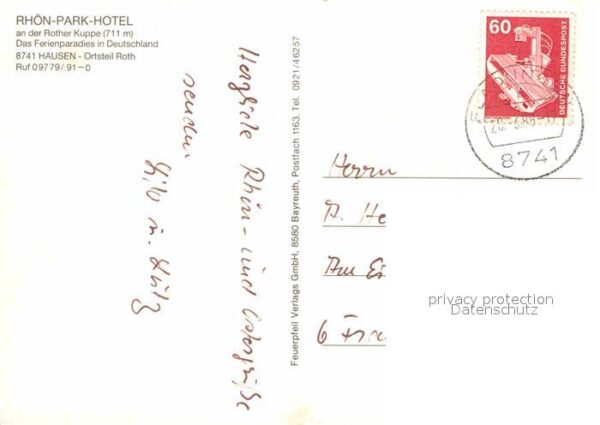 RHÖN-PARK-HOTEL
an der Rother Kuppe (711 m)
Das Ferienparadies in Deutschland
8741 HAUSEN - Ortsteil Roth
Ruf 09779/91-0
Herzliche Rhön- und Ostergrüße
senden
Feuerpfeil Verlags GmbH, 8580 Bayreuth, Postfach 1163, Tel. 0921/46257
60
DEUTSCHE BUNDESPOST
8741
Herrn
A. He
Am Ei
6 Fra
privacy protection
Datenschutz